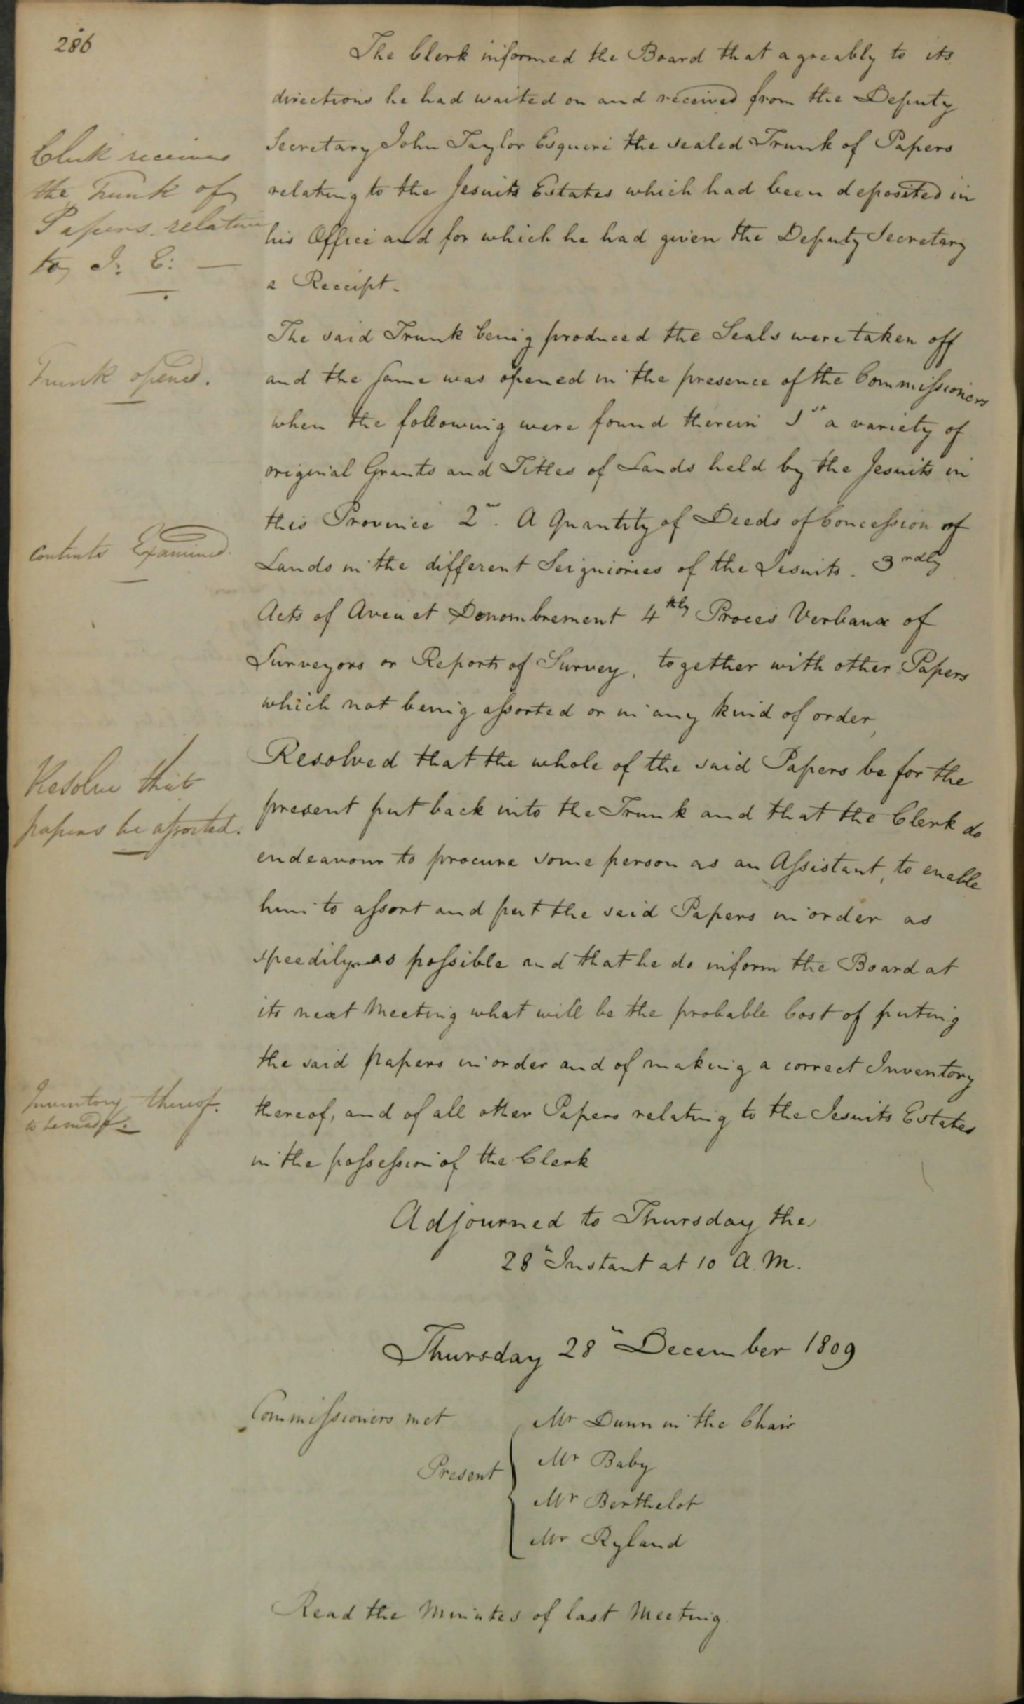 286
The Clerk informed the Board that agreably to its
directions he had waited on and received from the Deputy
Secretary John Taylor Esquire the sealed Trunk of Papers
relating to the Jesuits Estates which had been deposited in
his Office and for which he had given the Deputy Secretary
a Receipt.
Clerk receives
the Trunk of
Papers relative
to J: E: —
The said Trunk being produced the Seals were taken off
and the same was opened in the presence of the Commissioners
when the following were found therein 1st a variety of
original Grants and Titles of Lands held by the Jesuits in
this Province 2nd. A Quantity of Deeds of Concession of
Lands in the different Seigniories of the Jesuits. 3rdly
Acts of Aveu et Denombrement 4thly Proces Verbaux of
Surveyors or Reports of Survey, together with other Papers
which not being assorted or in any kind of order,
Trunk opened.
contents Examined.
Resolved that the whole of the said Papers be for the
present put back into the Trunk and that the Clerk do
endeavour to procure some person as an Assistant, to enable
him to assort and put the said Papers in order as
speedily as possible and that he do inform the Board at
its next Meeting what will be the probable Cost of puting
the said papers in order and of making a correct Inventory
thereof, and of all other Papers relating to the Jesuits Estates
in the possession of the Clerk
Resolve that
papers be assorted.
Inventory thereof.
to be made.
Adjourned to Thursday the
28th Instant at 10 A.M.
Thursday 28th December 1809
Commissioners met
Present
Mr Dunn in the Chair
Mr Baby
Mr Berthelot
Mr Ryland
Read the Minutes of last Meeting.